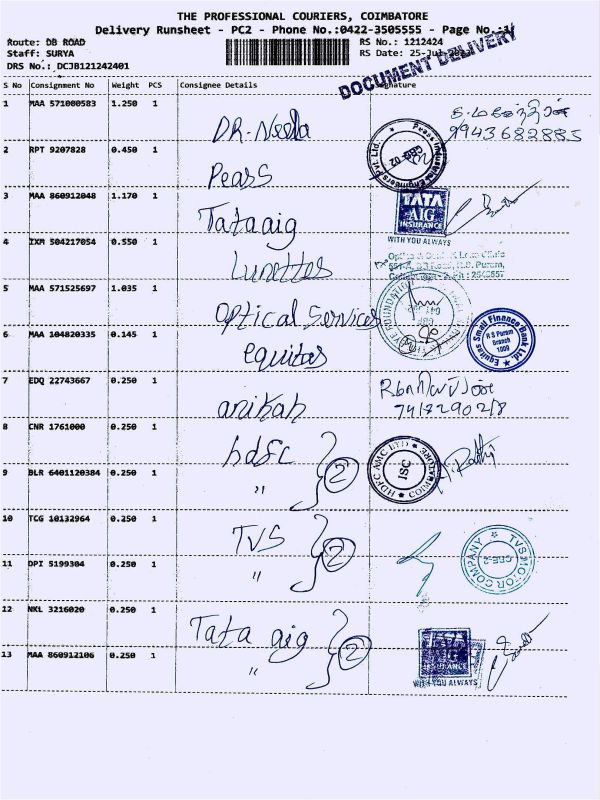 THE PROFESSIONAL COURIERS, COIMBATORE
Delivery Runsheet - PC2 - Phone No.:0422-3505555 - Page No.:1
Route: DB ROAD
RS No.: 1212424
Staff: SURYA
RS Date: 25-Jul-2023
DRS No.: DCJB121242401
DOCUMENT DELIVERY
S No Consignment No Weight PCS Consignee Details Signature
1 MAA 571000583 1.250 1
DR. Neela
9943682885
2 RPT 9207828 0.450 1
Pears
Press Industrial Engineers Pvt. Ltd.
3 MAA 860912048 1.170 1
Tata aig
TATA AIG INSURANCE
WITH YOU ALWAYS
4 IXM 504217054 0.550 1
Lunettes
5 MAA 571525697 1.035 1
Optical Services
6 MAA 104820335 0.145 1
equitas
Equitas Small Finance Bank Ltd.
R S Puram
Branch
1009
7 EDQ 22743667 0.250 1
anikah
8 CNR 1761000 0.250 1
hdfc
2
HDFC AMC LTD
ISC
9 BLR 6401120384 0.250 1
"
10 TCG 10132964 0.250 1
TVS
2
TVS MOTOR COMPANY
CBE-2
11 DPI 5199304 0.250 1
"
12 NKL 3216020 0.250 1
Tata aig
2
TATA AIG INSURANCE
WITH YOU ALWAYS
13 MAA 860912106 0.250 1
"